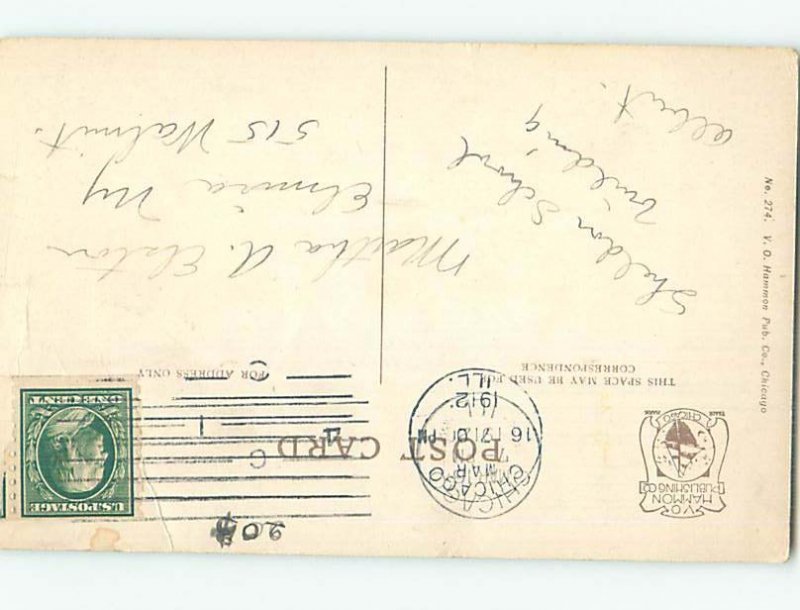 POST CARD
THIS SPACE MAY BE USED FOR
CORRESPONDENCE
FOR ADDRESS ONLY
V.O.
HAMMON
PUBLISHING CO.
CHICAGO
TRADE
MARK
CHICAGO
MAR
16
7
PM
1912
ILL.
U.S. POSTAGE
ONE CENT
20
C
Sheldon School
building
Albert.
Martha A. Elston
Elmira Ny
515 Walnut.
No. 274. V. O. Hammon Pub. Co., Chicago